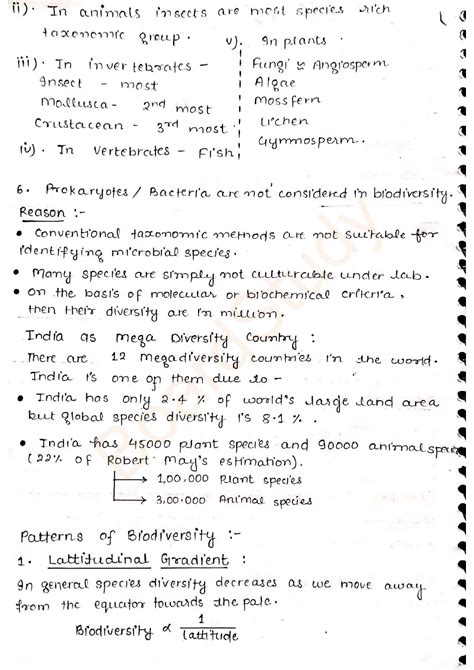 ii). In animals insects are most species rich
taxonomic group.
v). In plants.
iii). In invertebrates -
Fungi > Angiosperm
Insect - most
Algae
Mollusca - 2nd most
Moss fern
Crustacean - 3rd most
Lichen
iv). In vertebrates - Fish
Gymmosperm.
6. Prokaryotes / Bacteria are not considered in biodiversity.
Reason :-
• Conventional taxonomic methods are not suitable for
identifying microbial species.
• Many species are simply not culturable under lab.
• On the basis of molecular or biochemical criteria,
then their diversity are in million.
India as Mega Diversity Country :
There are 12 megadiversity countries in the world.
India is one of them due to -
• India has only 2.4 % of world's large land area
but global species diversity is 8.1 %.
• India has 45000 plant species and 90000 animal species
(22% of Robert May's estimation).
1,00,000 Plant species
3,00,000 Animal species
Patterns of Biodiversity :-
1. Lattitudinal Gradient :
In general species diversity decreases as we move away
from the equator towards the pole.
Biodiversity ∝ 1/Lattitude